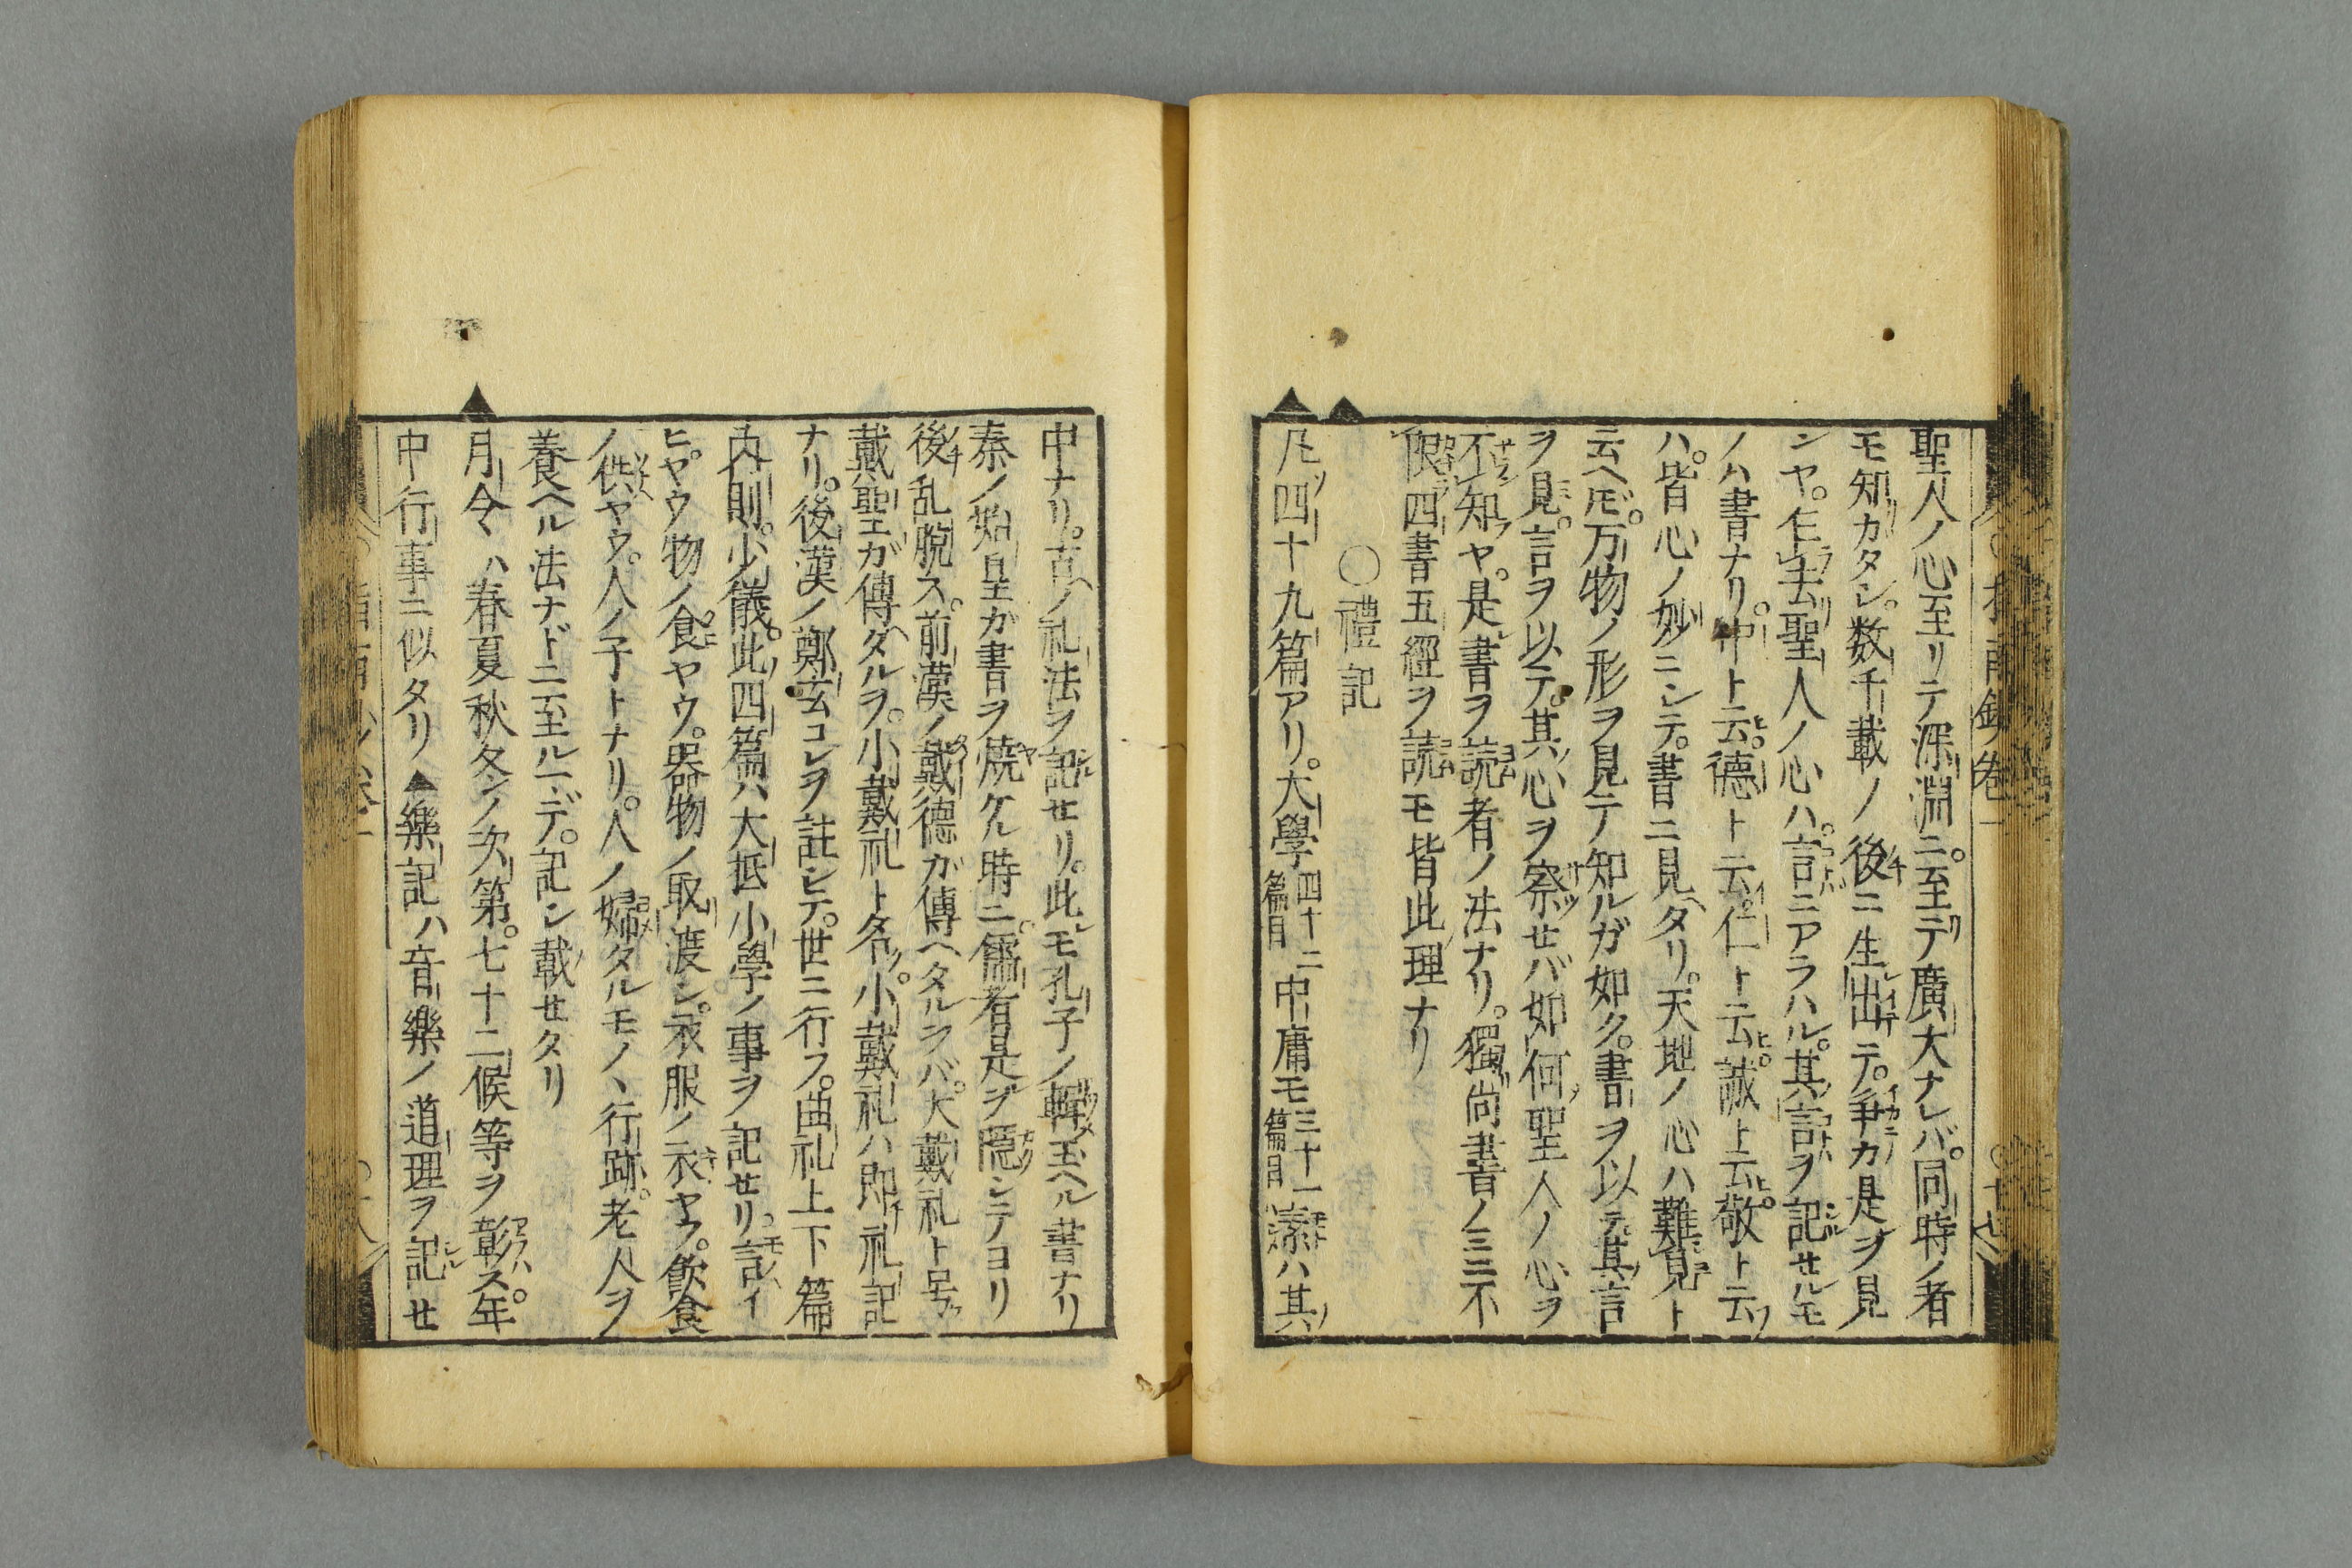 聖人ノ心至リテ深淵ニ。至テ廣大ナレバ。同時ノ者
モ知カタシ。数千載ノ後ニ生出テ。争カ是ヲ見
ンヤ。 聖人ノ心ハ。言ニアラハル。其言ヲ記セルモ
ノハ書ナリ。中ト云。德ト云。仁ト云。誠ト云。敬ト云
ハ。皆心ノ妙ニシテ。書ニ見タリ。天地ノ心ハ難見ト
云ヘ𪜈。万物ノ形ヲ見テ知ルガ如ク。書ヲ以テ其言
ヲ見。言ヲ以テ。其心ヲ察セバ如何聖人ノ心ヲ
不知ヤ。是書ヲ読者ノ法ナリ。獨尚書ノミニ不
限四書五經ヲ読モ皆此理ナリ
○禮記
凡四十九篇アリ。大學四十二篇目中庸モ三十一篇目 ハ其
中ナリ。古ノ礼法ヲ記セリ。此モ孔子ノ輯玉ヘル書ナリ
秦ノ始皇ガ書ヲ燒ケル時ニ。儒者是ヲ隱シテヨリ
後乱脱ス。前漢ノ戴德ガ傳ヘタルヲバ。大戴礼ト号
戴聖ガ傳タルヲ。小戴礼ト名。小戴礼ハ即礼記
ナリ。後漢ノ鄭玄コレヲ註シテ。世ニ行フ。曲礼上下篇
内則。少儀。此四篇ハ大抵小學ノ事ヲ記セリ。言イ
ヒヤウ物ノ食ヤウ。器物ノ取渡シ。衣服ノ衣ヤウ。飲食
ノ供ヤウ。人ノ子トナリ。人ノ婦タルモノヽ行跡。老人ヲ
養ヘル法ナドニ至ルマデ。記シ載セタリ
月令ハ春夏秋冬ノ次第。七十二候等ヲ彰ス。年
中行事ニ似タリ▲樂記ハ音樂ノ道理ヲ記セ